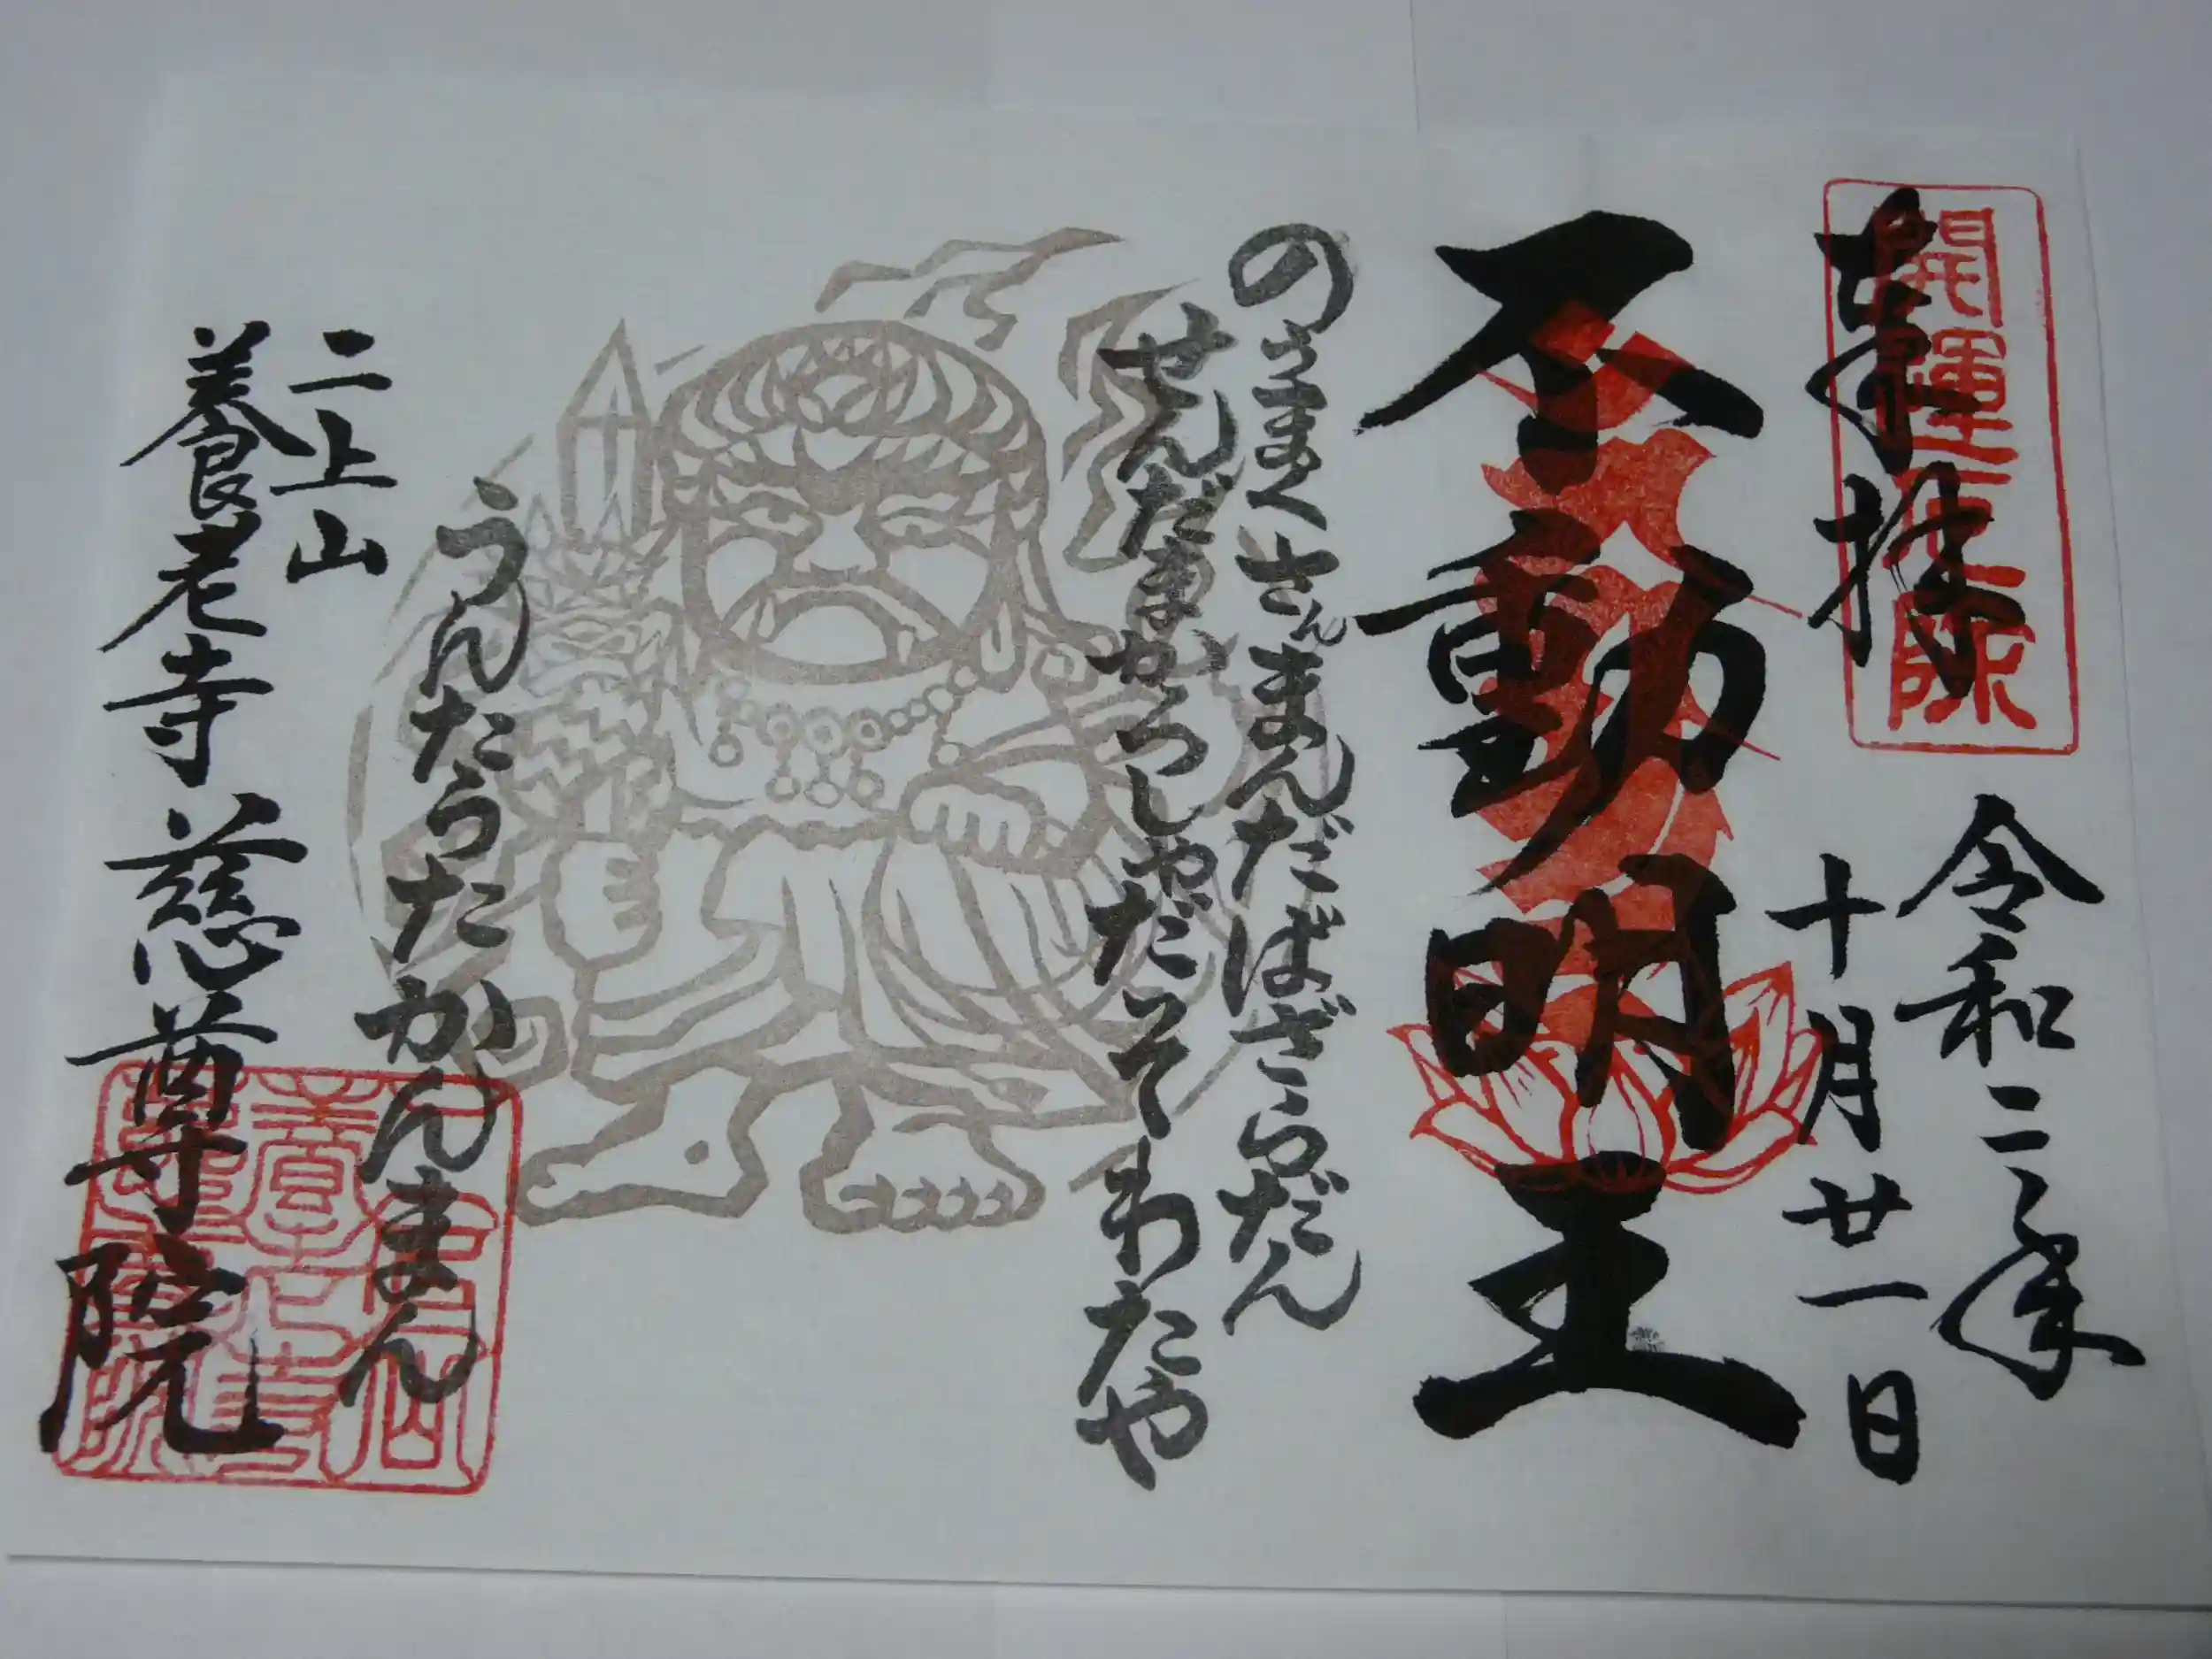 開運厄除
奉拝
令和二年
十月廿一日
不動明王
のうまくさんまんだばざらだん
せんだまかろしゃだそわたや
うんたらたかんまん
二上山
養老寺 慈尊院